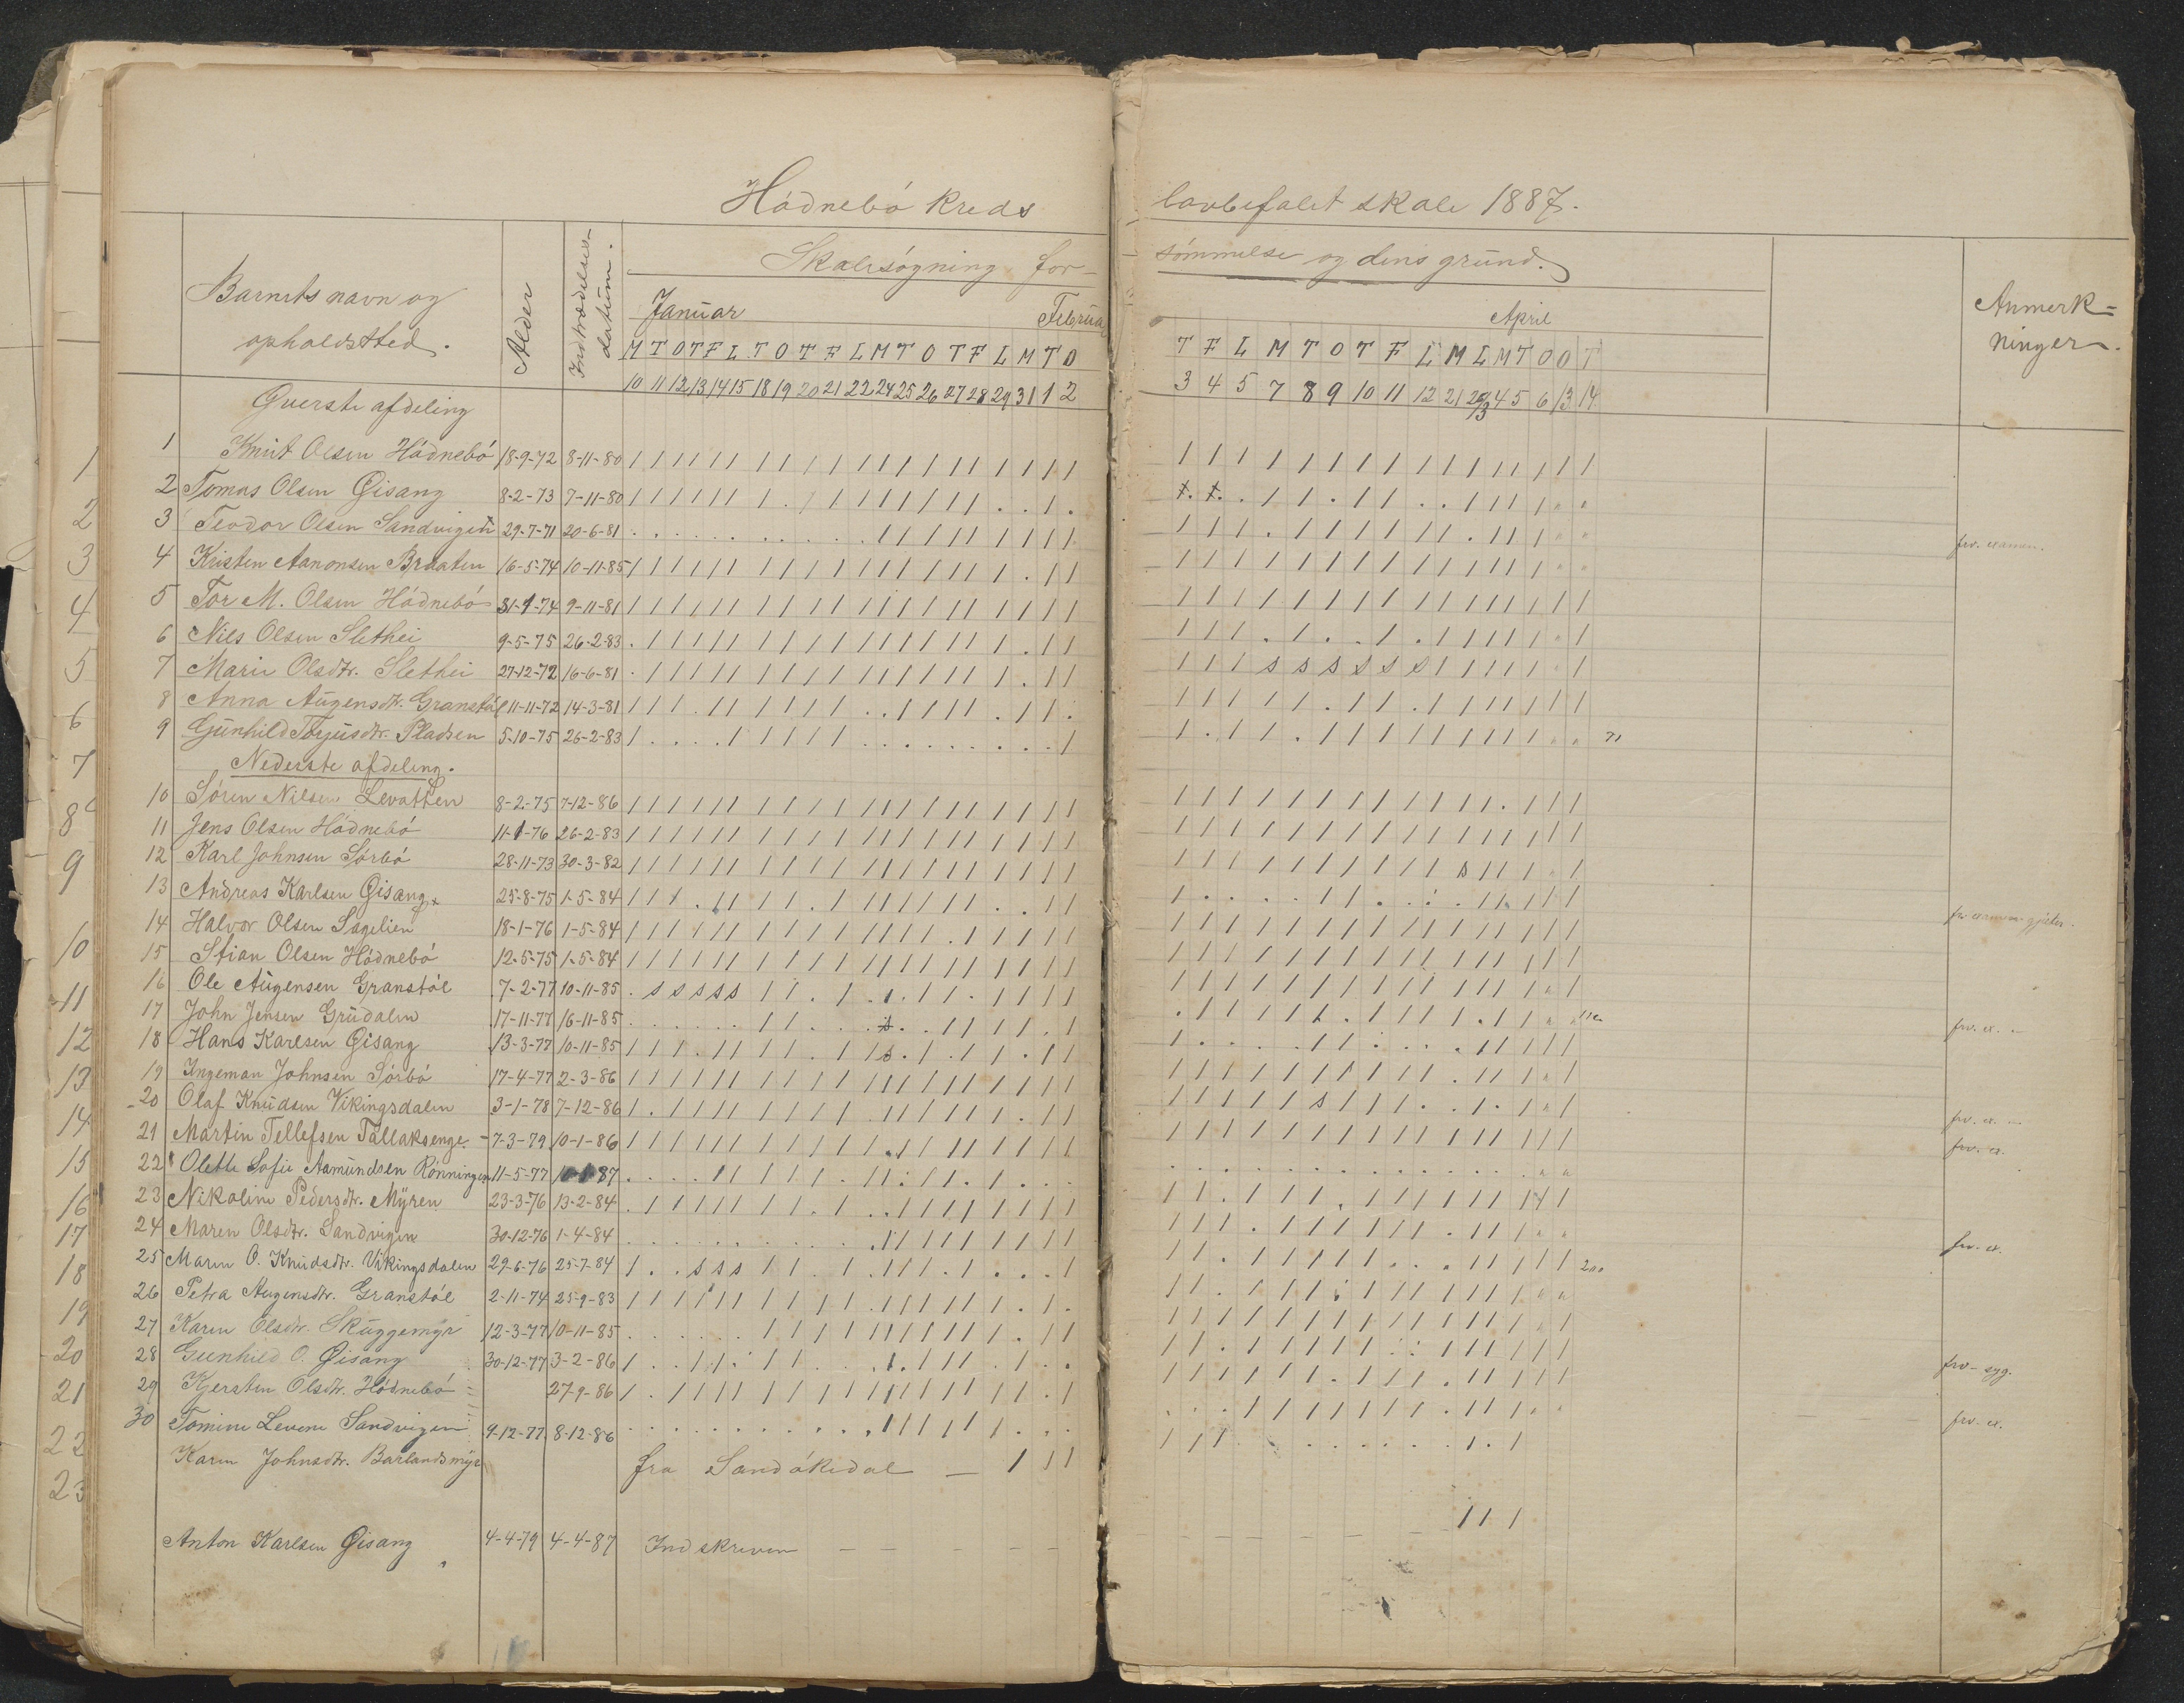 Hódnebó Kreds lovbefalet skole 1887.
Barnets navn og opholdssted.
Alder
Indtrædelsesdatum.
Skolesógning forsómmelse og dens grund.
Anmerkninger.
Januar Februar April
M T O T F L T O T F L M T O T F L M T O T F L M T O T F L M L M T O O T
10 11 12 13 14 15 18 19 20 21 22 24 25 26 27 28 29 31 1 2 3 4 5 7 8 9 10 11 12 21 26/3 4 5 6 13 14
Qverste afdeling
1 Knut Olsen Hódnebó 18-9-72 8-11-80
2 Tomas Olsen Gisang 8-2-73 7-11-80
3 Teodor Olsen Sandvigen 29-7-71 20-6-81 frv. examen.
4 Kristen Aanonsen Braaten 16-5-74 10-11-85
5 Tor M. Olsen Hódnebó 31-1-74 9-11-81
6 Nils Olsen Slethei 9-5-75 26-2-83
7 Marie Olsdtr. Slethei 27-12-72 16-6-81 s s s s s s
8 Anna Augensdtr. Granstól 11-11-72 14-3-81
9 Gunhild Torjusdtr. Pladsen 5-10-75 26-2-83
Nederste afdeling.
10 Sóren Nilsen Levatten 8-2-75 7-12-86
11 Jens Olsen Hódnebó 11-1-76 26-2-83
12 Karl Johnsen Sórbó 28-11-73 30-3-82 s
13 Andreas Karlsen Gisang 25-8-75 1-5-84
14 Halvor Olsen Sagelien 18-1-76 1-5-84
15 Stian Olsen Hódnebó 12-5-75 1-5-84
16 Ole Augensen Granstól 7-2-77 10-11-85 s s s s s
17 John Jensen Grudalen 17-11-77 16-11-85 frv. ex.
18 Hans Karlsen Gisang 13-3-77 10-11-85
19 Ingeman Johnsen Sórbó 17-4-77 2-3-86
20 Olaf Knudsen Vikingsdalen 3-1-78 7-12-86 s frv. ex.
21 Martin Tellefsen Tallaksenge 7-3-79 10-1-86 frv. ex.
22 Olette Sofie Aamundsen Rónningen 11-5-77 10-1-87
23 Nikoline Pedersdtr. Myren 23-3-76 13-2-84
24 Maren Olsdtr. Sandvigen 30-12-76 1-4-84 frv. ex.
25 Maren O. Knudsdtr. Vikingsdalen 29-6-76 25-7-84 s s s
26 Petra Augensdtr. Granstól 2-11-74 25-9-83
27 Karen Olsdtr. Skuggemyr 12-3-77 10-11-85
28 Gunhild O. Gisang 30-12-77 3-2-86 frv- syg.
29 Kjersten Olsdtr. Hódnebó 27-9-86
30 Tomine Levene Sandvigen 9-12-77 8-12-86 frv- ex.
Karen Johnsdtr. Barlandsmyr fra Sandókedal
Anton Karlsen Gisang 4-4-79 4-4-87 Indskreven
1
2
3
4
5
6
7
8
9
10
11
12
13
14
15
16
17
18
19
20
21
22
23